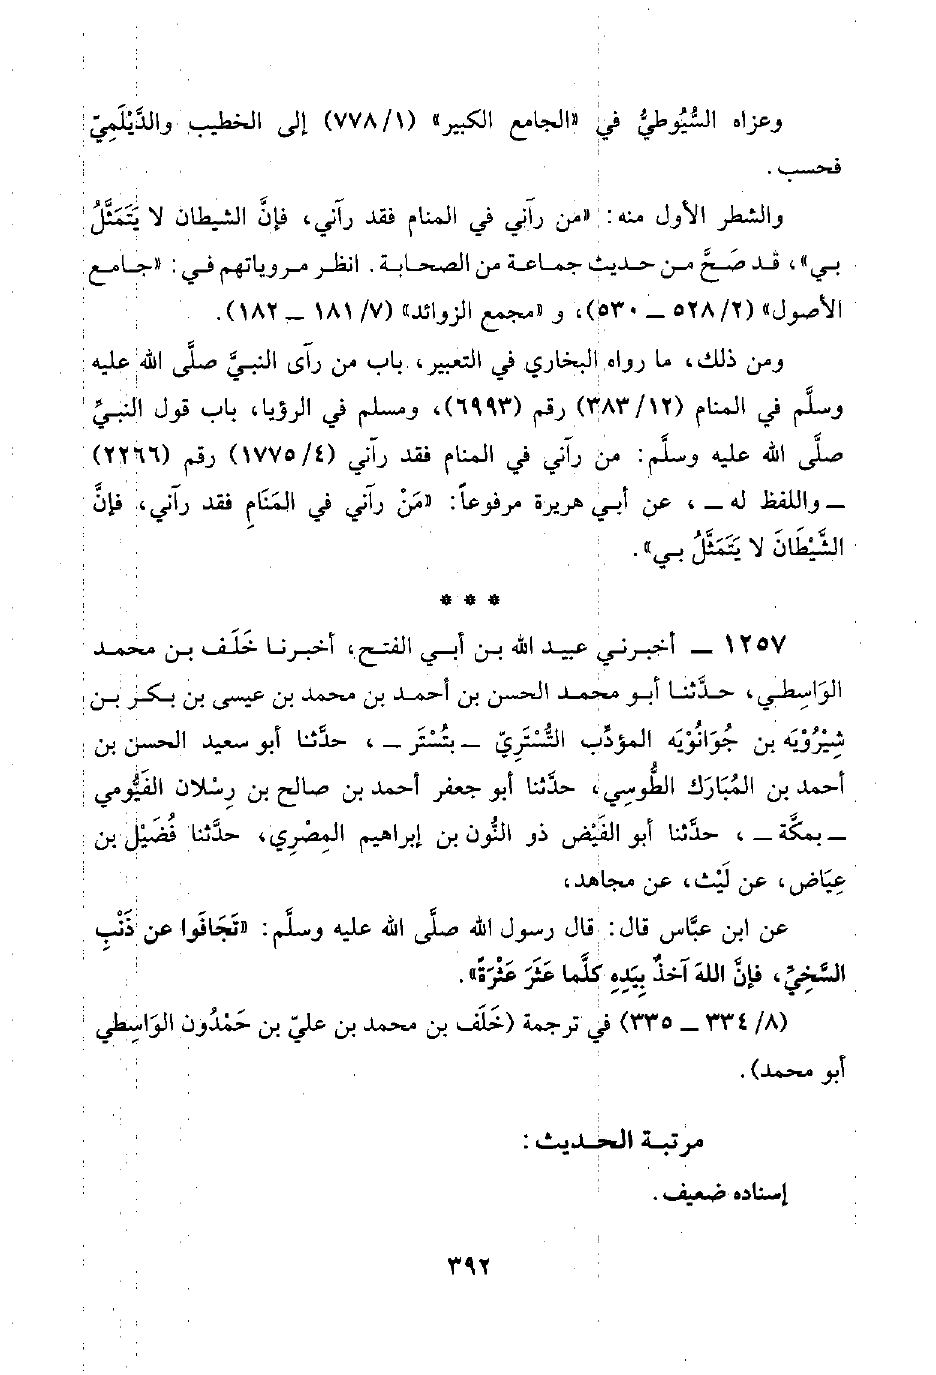 وعزاه السُّيُوطيُّ في «الجامع الكبير» (١/٧٧٨) إلى الخطيب والدَّيْلَمِيّ
فحسب.
والشطر الأول منه: «من رآني في المنام فقد رآني، فإنَّ الشيطان لا يَتَمَثَّلُ
بي»، قد صَحَّ من حديث جماعة من الصحابة. انظر مروياتهم في: «جامع
الأصول» (٢/٥٢٨ ــ ٥٣٠)، و «مجمع الزوائد» (٧/١٨١ ــ ١٨٢).
ومن ذلك، ما رواه البخاري في التعبير، باب من رأى النبيَّ صلَّى الله عليه
وسلَّم في المنام (١٢/٣٨٣) رقم (٦٩٩٣)، ومسلم في الرؤيا، باب قول النبيِّ
صلَّى الله عليه وسلَّم: من رآني في المنام فقد رآني (٤/١٧٧٥) رقم (٢٢٦٦)
ــ واللفظ له ــ، عن أبي هريرة مرفوعاً: «مَنْ رآني في المَنَامِ فقد رآني، فإنَّ
الشَّيْطَانَ لا يَتَمَثَّلُ بي».
* * *
١٢٥٧ ــ أخبرني عبيد الله بن أبي الفتح، أخبرنا خَلَف بن محمد
الوَاسِطي، حدَّثنا أبو محمد الحسن بن أحمد بن محمد بن عيسى بن بكر بن
شِيْرُوْيَه بن جُوَانُوْيَه المؤدِّب التُّسْتَرِيّ ــ بتُسْتَر ــ، حدَّثنا أبو سعيد الحسن بن
أحمد بن المُبَارَك الطُّوسِي، حدَّثنا أبو جعفر أحمد بن صالح بن رِسْلان الفَيُّومي
ــ بمكَّة ــ، حدَّثنا أبو الفَيْض ذو النُّون بن إبراهيم المِصْرِي، حدَّثنا فُضَيْل بن
عِيَاض، عن لَيْث، عن مجاهد،
عن ابن عبَّاس قال: قال رسول الله صلَّى الله عليه وسلَّم: «تَجَافَوا عن ذَنْبِ
السَّخِيِّ، فإنَّ اللهَ آخذٌ بِيَدِهِ كلَّما عَثَرَ عَثْرَةً».
(٨/٣٣٤ ــ ٣٣٥) في ترجمة (خَلَف بن محمد بن عليّ بن حَمْدُون الوَاسِطي
أبو محمد).
مرتبة الحديث:
إسناده ضعيف.
٣٩٢